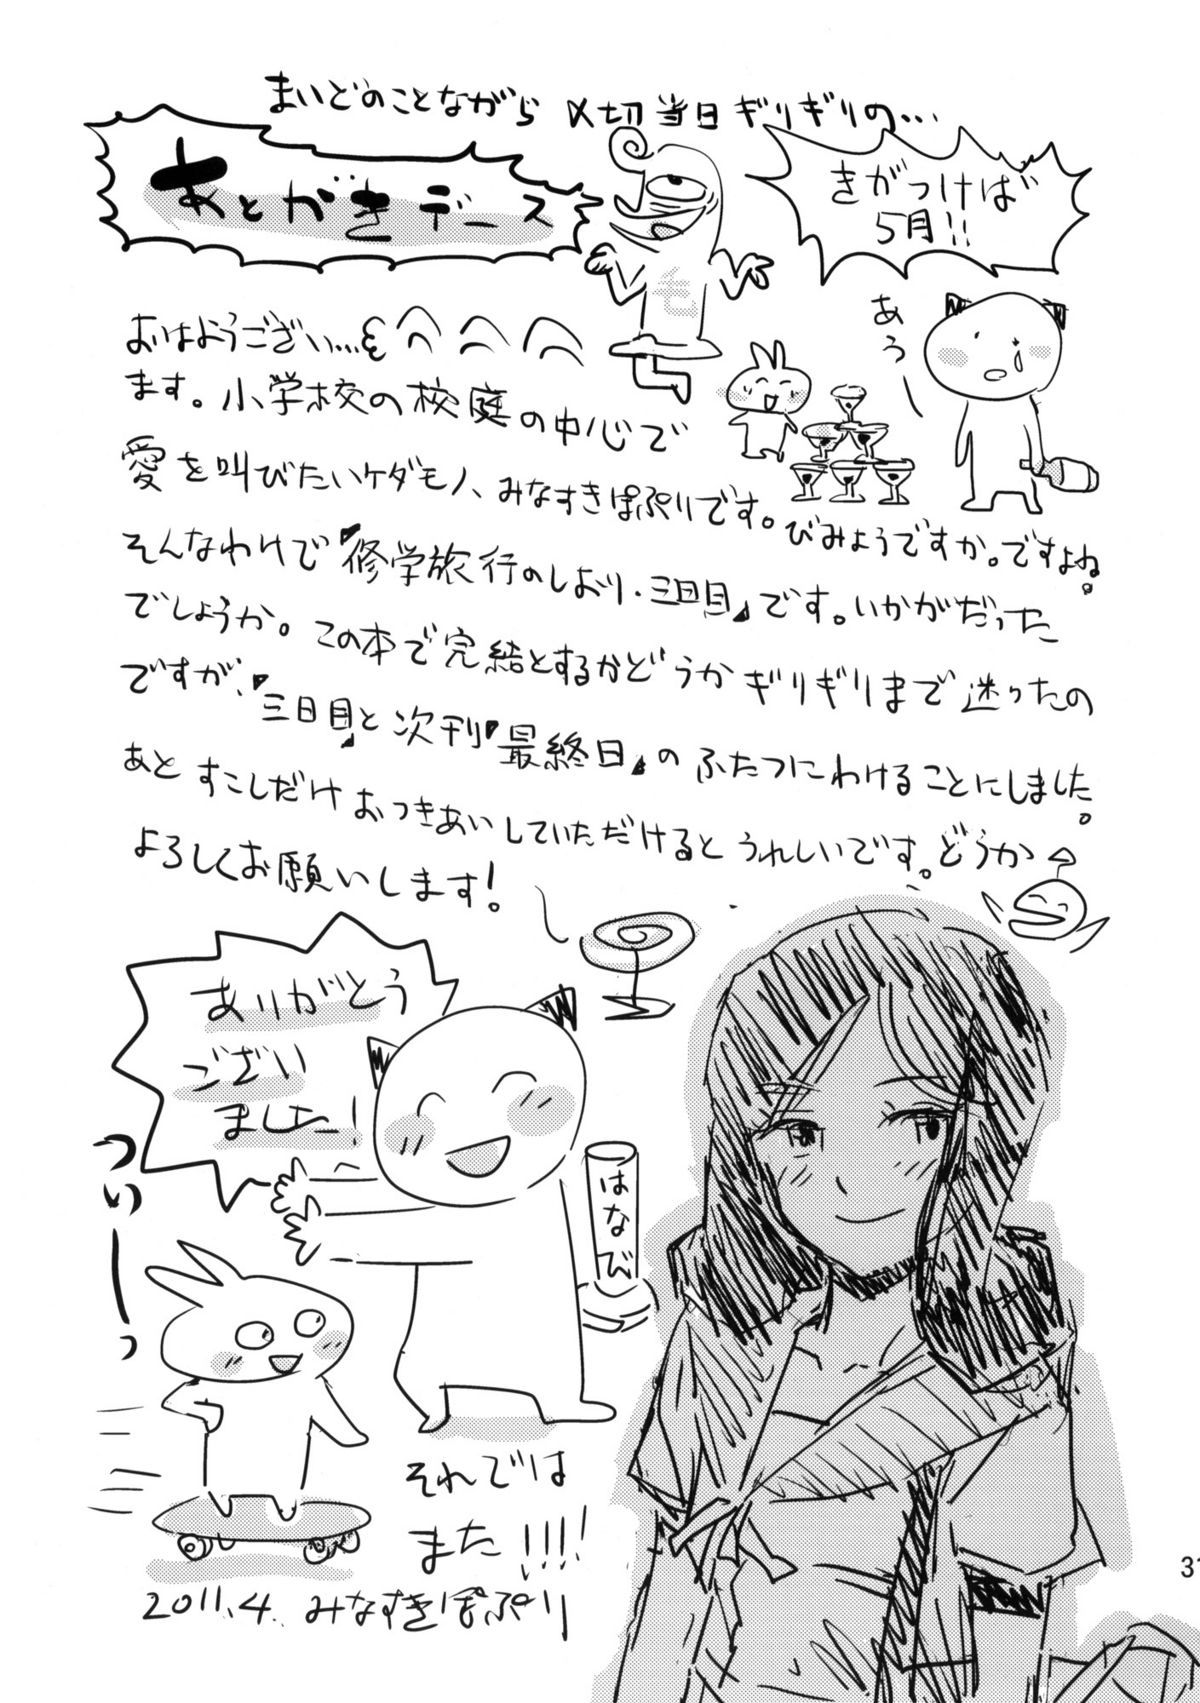 まいどのことながら〆切当日ギリギリの…
あとがきデース
きがつけば
5月!!
あう
も
おはようござい…
ます。小学校の校庭の中心で
愛を叫びたいケダモノ、みなすきぽぷりです。びみょうですか。ですよね。
そんなわけで『修学旅行のしおり・三日目』です。いかがだった
でしょうか。この本で完結とするかどうかギリギリまで迷ったの
ですが、『三日目』と次刊『最終日』のふたつにわけることにしました。
あとすこしだけおつきあいしていただけるとうれしいです。どうか
よろしくお願いします!
ありがとう
ござい
ました!
はなび
ついーっ
それでは
また!!!!
2011.4. みなすきぽぷり